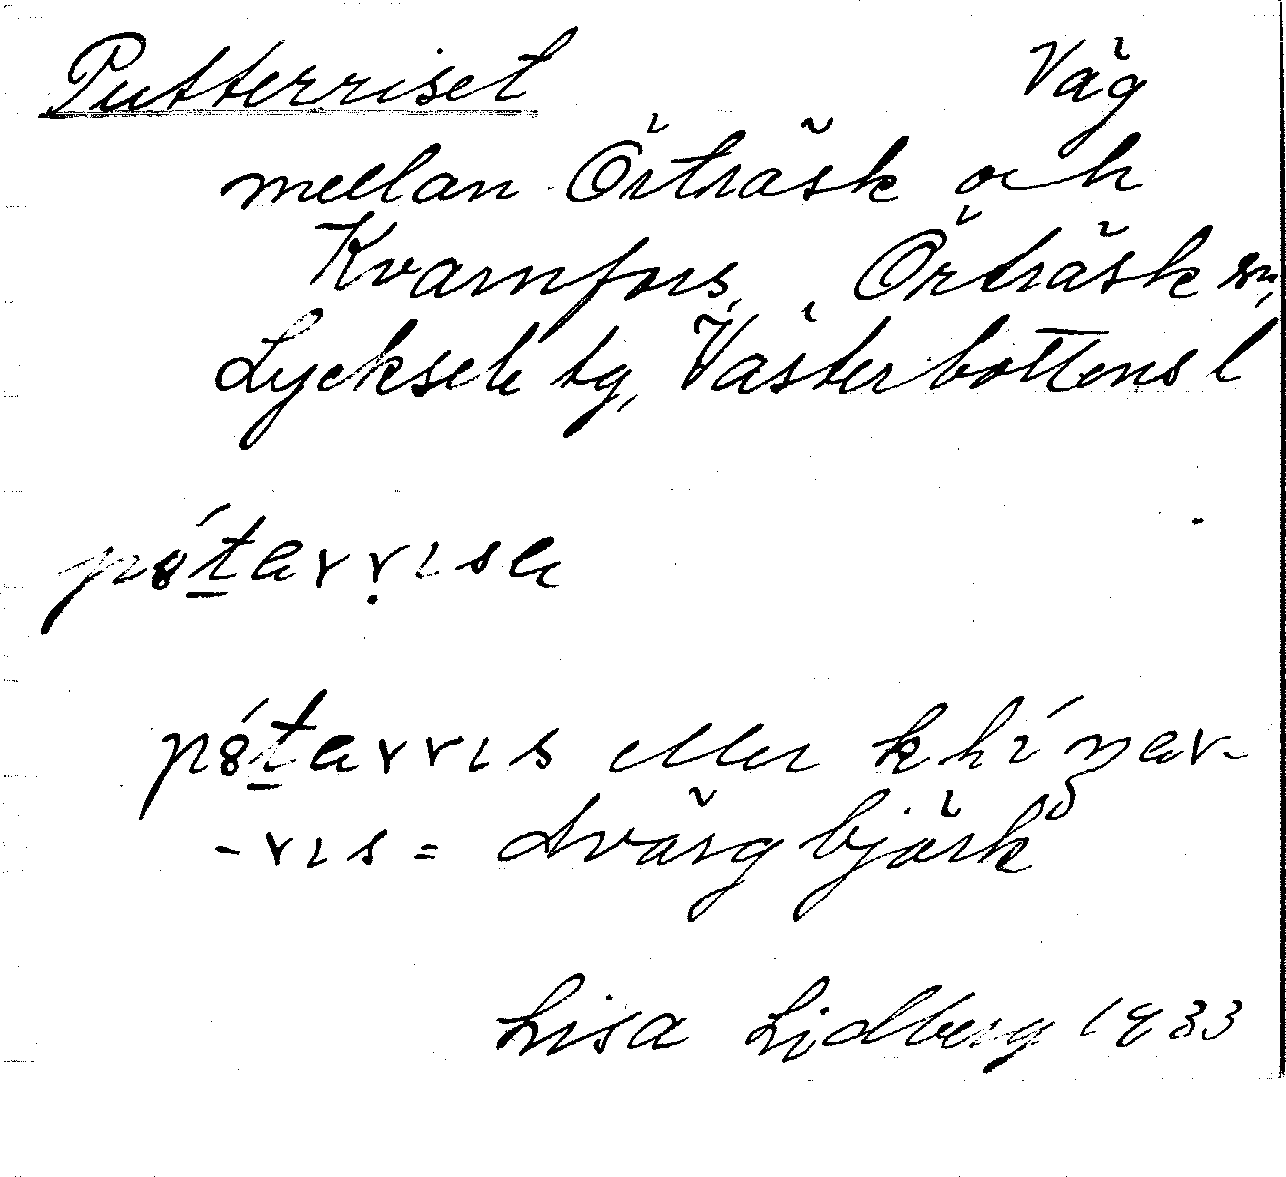 Putterriset Väg
mellan Örträsk och
Kvarnfors, Örträsk sn,
Lycksele tg, Västerbottens l
pó̱tarrisa
pótarris eller khínar-
-ris = dvärgbjörk
Lisa Lidberg 1933